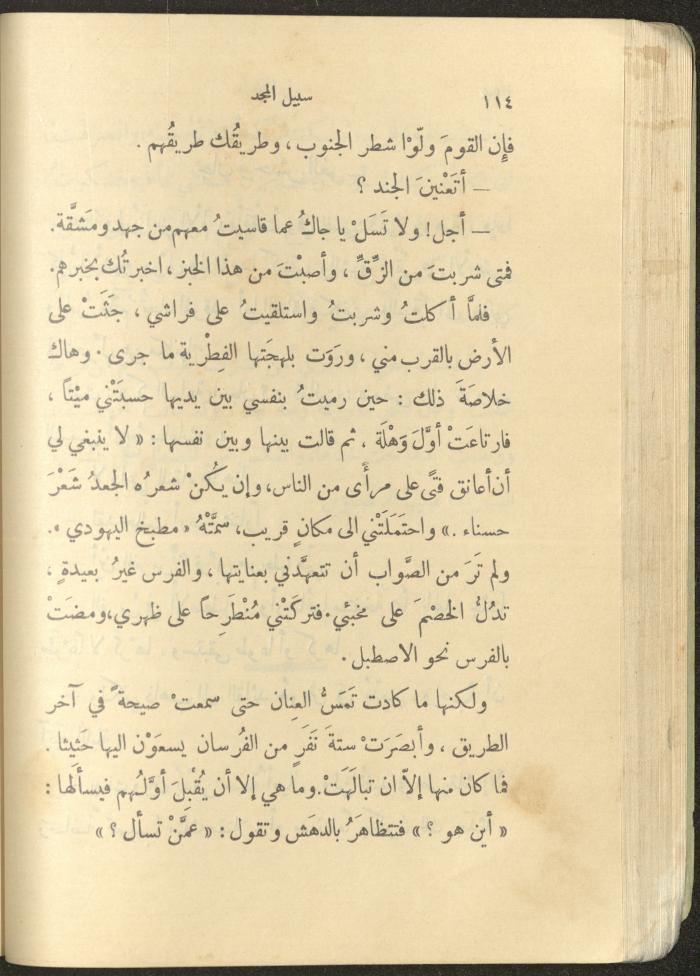 ١١٤ سبيل المجد
فإِن القومَ ولّوْا شطر الجنوب ، وطريقُك طريقُهم .
— أتَعْنينَ الجند ؟
— أجل! ولا تَسَلْ يا جاكُ عما قاسيتُ معهم من جهد ومَشقَّة.
فمتى شربتَ من الزِّقِّ ، وأصبْتَ من هذا الخبز ، اخبرتُك بخبرهم.
فلمَّا أكلتُ وشربتُ واستلقيتُ على فراشي ، جَثَتْ على
الأرض بالقرب مني ، ورَوَت بلهجَتها الفِطْرية ما جرى . وهاك
خلاصَةَ ذلك : حين رميتُ بنفسي بين يديها حسبَتْني ميْتاً ،
فارتاعَتْ أوَّلَ وَهْلَة ، ثم قالت بينها وبين نفسها : « لا ينبغي لي
أن أعانق فتًى على مرأًى من الناس، وإن يكُنْ شعرُه الجعدُ شَعْرَ
حسناء .» واحتَمَلَتْني الى مكانٍ قريب، سمَّتْهُ « مطبخ اليهودي ».
ولم تَرَ من الصَّواب أن تتعهَّدني بعنايتها ، والفرس غيرُ بعيدةٍ ،
تدُلُّ الخصْمَ على مخبئي. فتركَتْني مُنْطَرِحاً على ظهري، ومضَتْ
بالفرس نحو الاصطبل.
ولكنها ما كادت تَمَسُّ العِنان حتى سمعتْ صيحةً في آخر
الطريق ، وأبصَرَتْ ستةَ نَفَرٍ من الفُرسان يسعَوْن اليها حَثيثا .
فما كان منها إلاّ ان تبالَهَتْ. وما هي إلا أن يُقْبِلَ أوَّلُهم فيسألَها :
« أين هو ؟ » فتتظاهَرُ بالدهَش وتقول : « عمَّنْ تسأل ؟ »